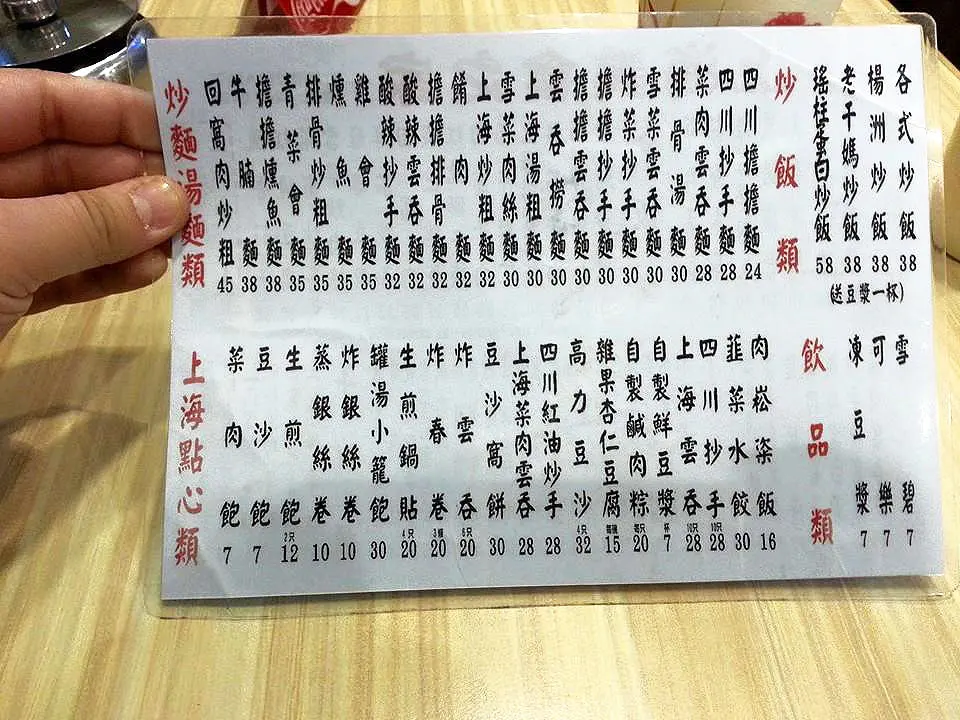 炒麵湯麵類
回窩肉炒粗 45
牛腩麵 38
擔擔燻魚麵 38
青菜會麵 35
排骨炒粗麵 35
燻魚麵 35
雞會麵 35
酸辣抄手麵 32
酸辣雲吞麵 32
擔擔排骨麵 32
餚肉麵 32
上海炒粗麵 32
雪菜肉絲麵 30
上海湯粗麵 30
雲吞撈麵 30
擔擔雲吞麵 30
擔擔抄手麵 30
炸菜抄手麵 30
雪菜雲吞麵 30
排骨湯麵 30
菜肉雲吞麵 28
四川抄手麵 28
四川擔擔麵 24
炒飯類
瑤柱蛋白炒飯 58
老干媽炒飯 38
楊洲炒飯 38
各式炒飯 38
(送豆漿一杯)
上海點心類
菜肉飽 7
豆沙飽 7
生煎飽 2只 12
蒸銀絲卷 10
炸銀絲卷 10
罐湯小籠飽 30
生煎鍋貼 4只 20
炸春卷 3條 20
炸雲吞 6只 20
豆沙窩餅 30
上海菜肉雲吞 28
四川紅油炒手 28
高力豆沙 4只 32
雜果杏仁豆腐 每碗 15
自製鹹肉粽 每只 20
自製鮮豆漿 杯 7
上海雲吞 10只 28
四川抄手 10只 28
韮菜水餃 30
肉崧粢飯 16
飲品類
凍豆漿 7
可樂 7
雪碧 7